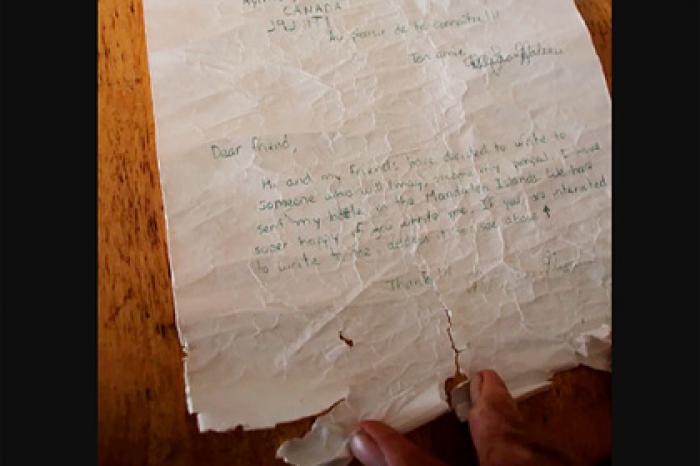 CANADA
J9J 1T1
Au plaisir de te connaître!!!
Ton amie,
Dear friend,
Me and my friends have decided to write to
someone who will may, become my penpal. I have
sent my bottle in the Magdalen Islands. We have
super happy if you wrote me. If you so interated
to write to me, adress it to: see above ↑
Thank!!!